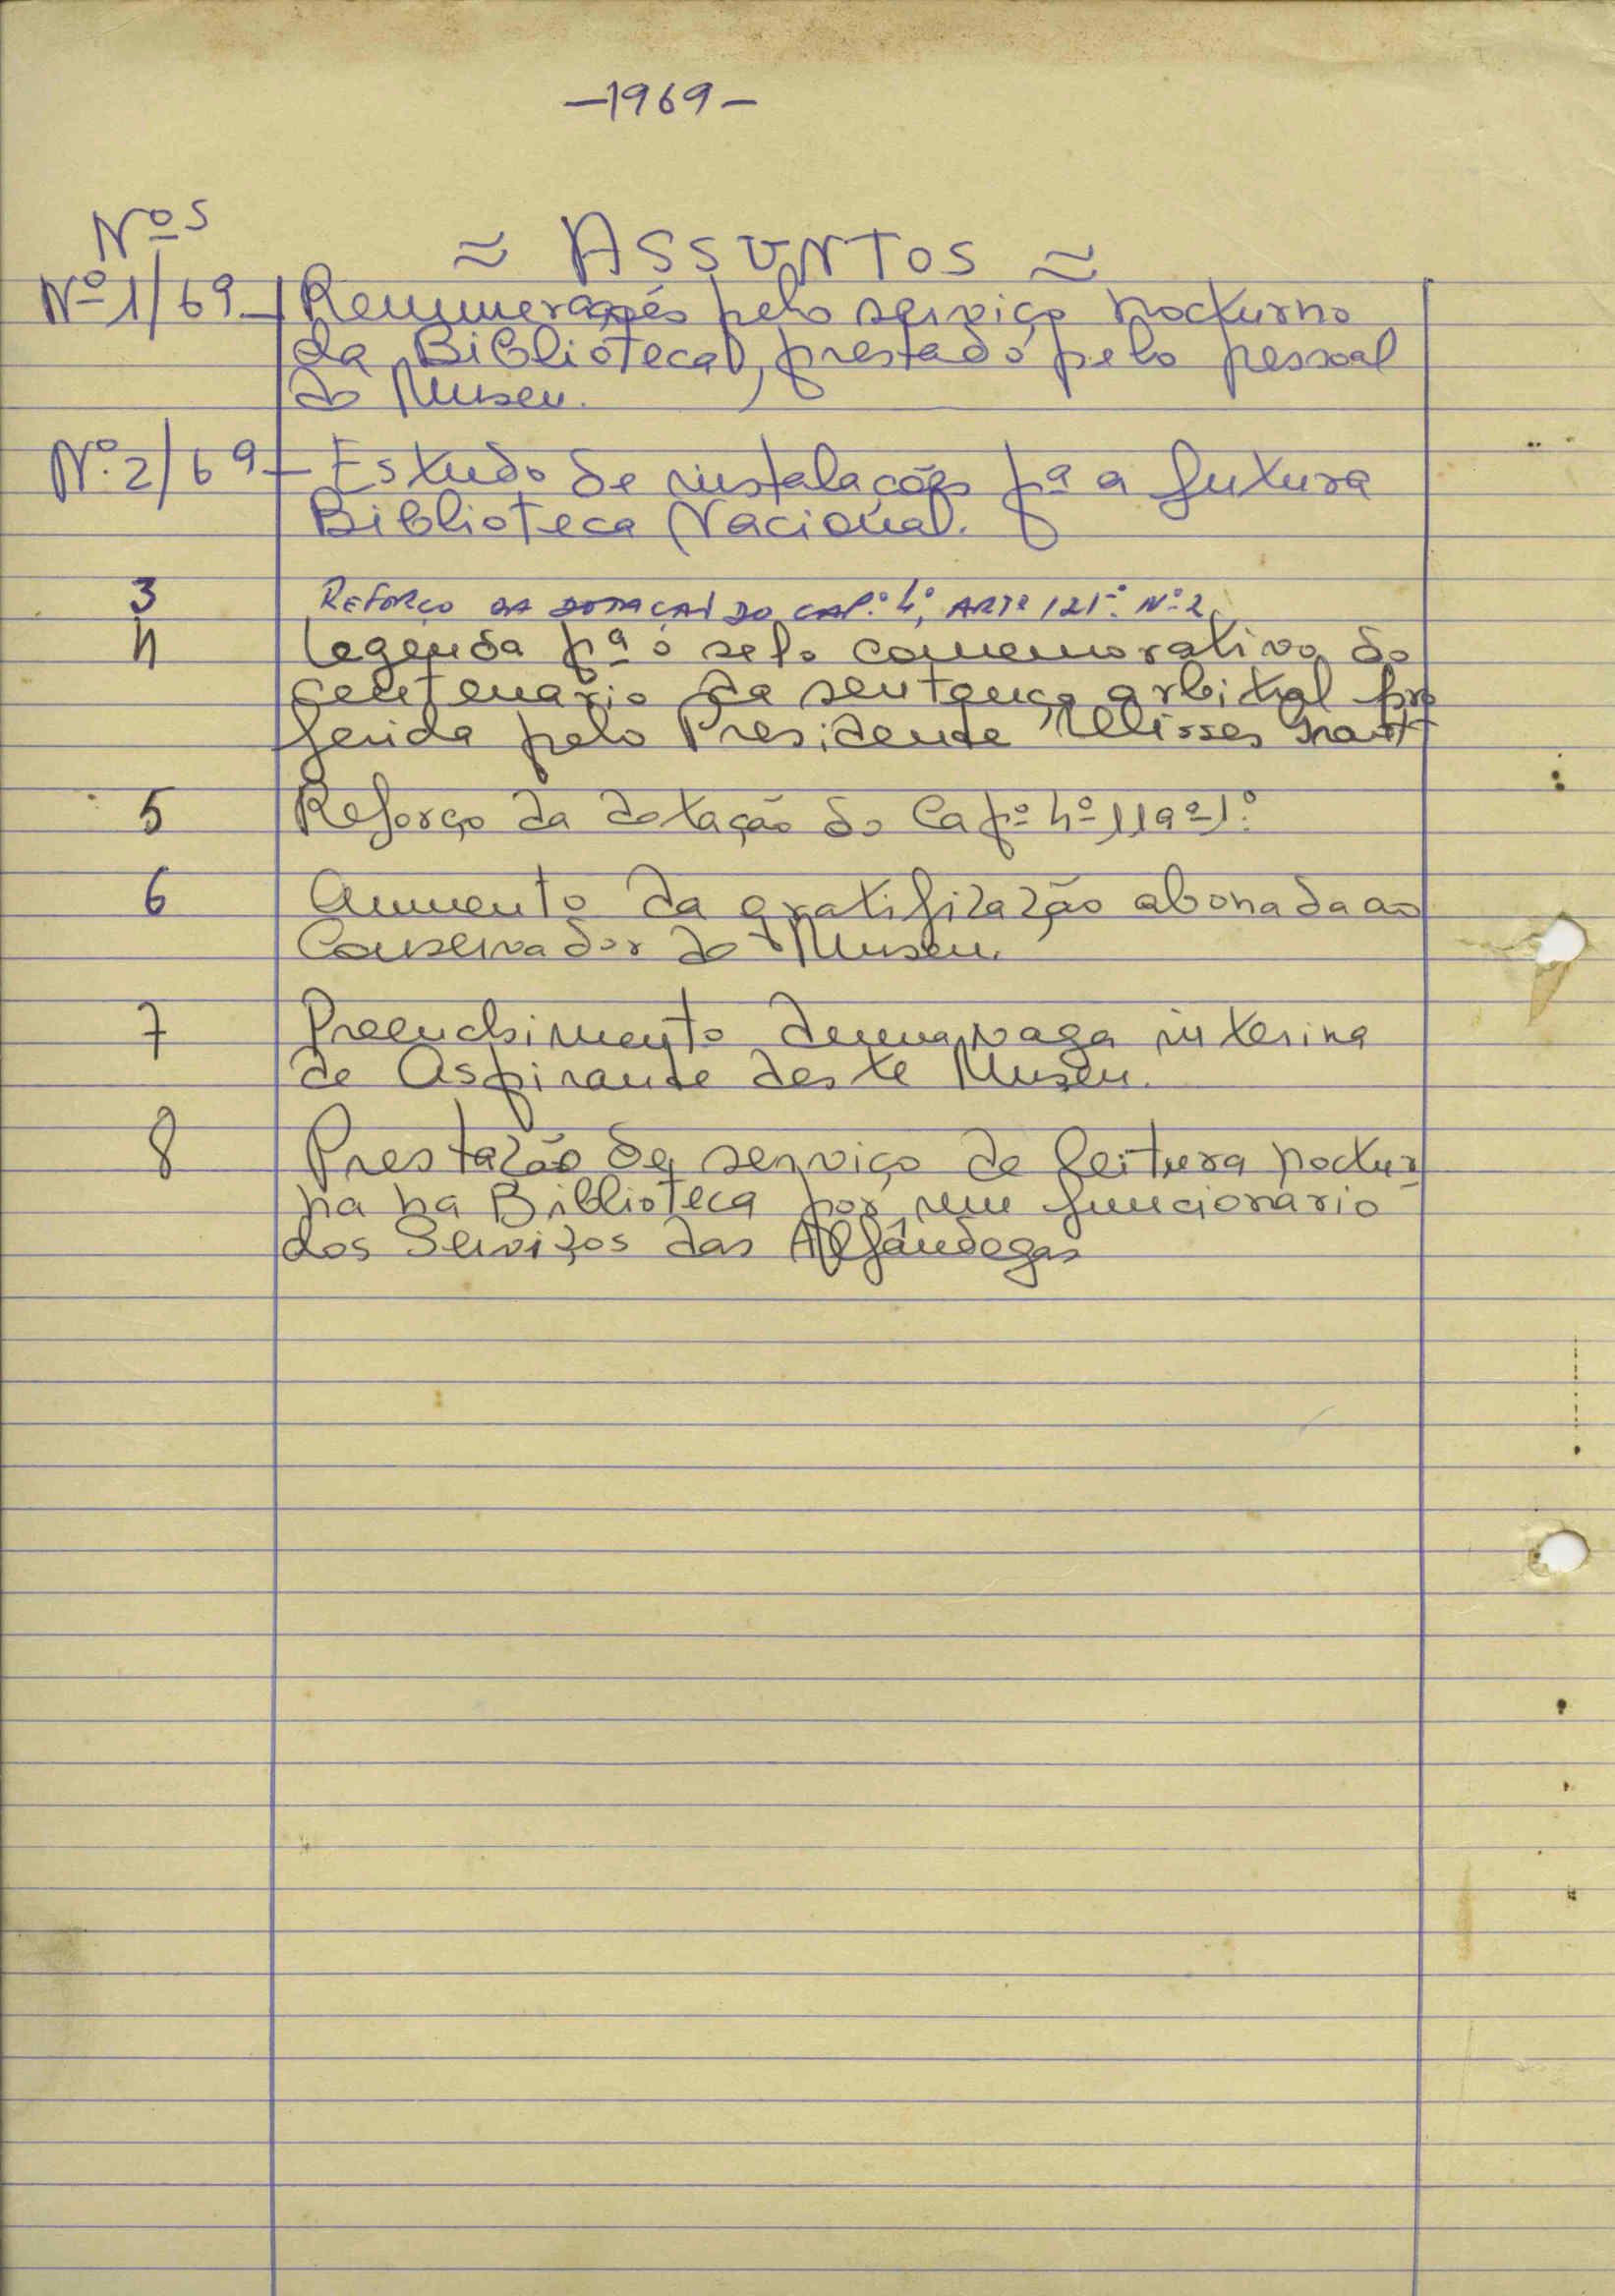 -1969-
Nºs
≈ ASSUNTOS ≈
Nº1/69- Remunerações pelo serviço nocturno
da Biblioteca, prestado pelo pessoal
do Museu.
Nº.2/69- Estudo de instalações pª a futura
Biblioteca Nacional.
3 REFORÇO DA DOTAÇÃO DO CAP.º 4º, ARTº 121º. Nº.2
4 Legenda pª o selo comemorativo do
centenário da sentença arbitral pro
ferida pelo Presidente Ulisses Grant
5 Reforço da dotação do Capº 4º-119º-1º.
6 Aumento da gratificação abonada ao
Conservador do Museu.
7 Preenchimento de uma vaga interina
de Aspirante deste Museu.
8 Prestação de serviço de leitura noctur-
na na Biblioteca por um funcionário
dos Serviços das Alfândegas